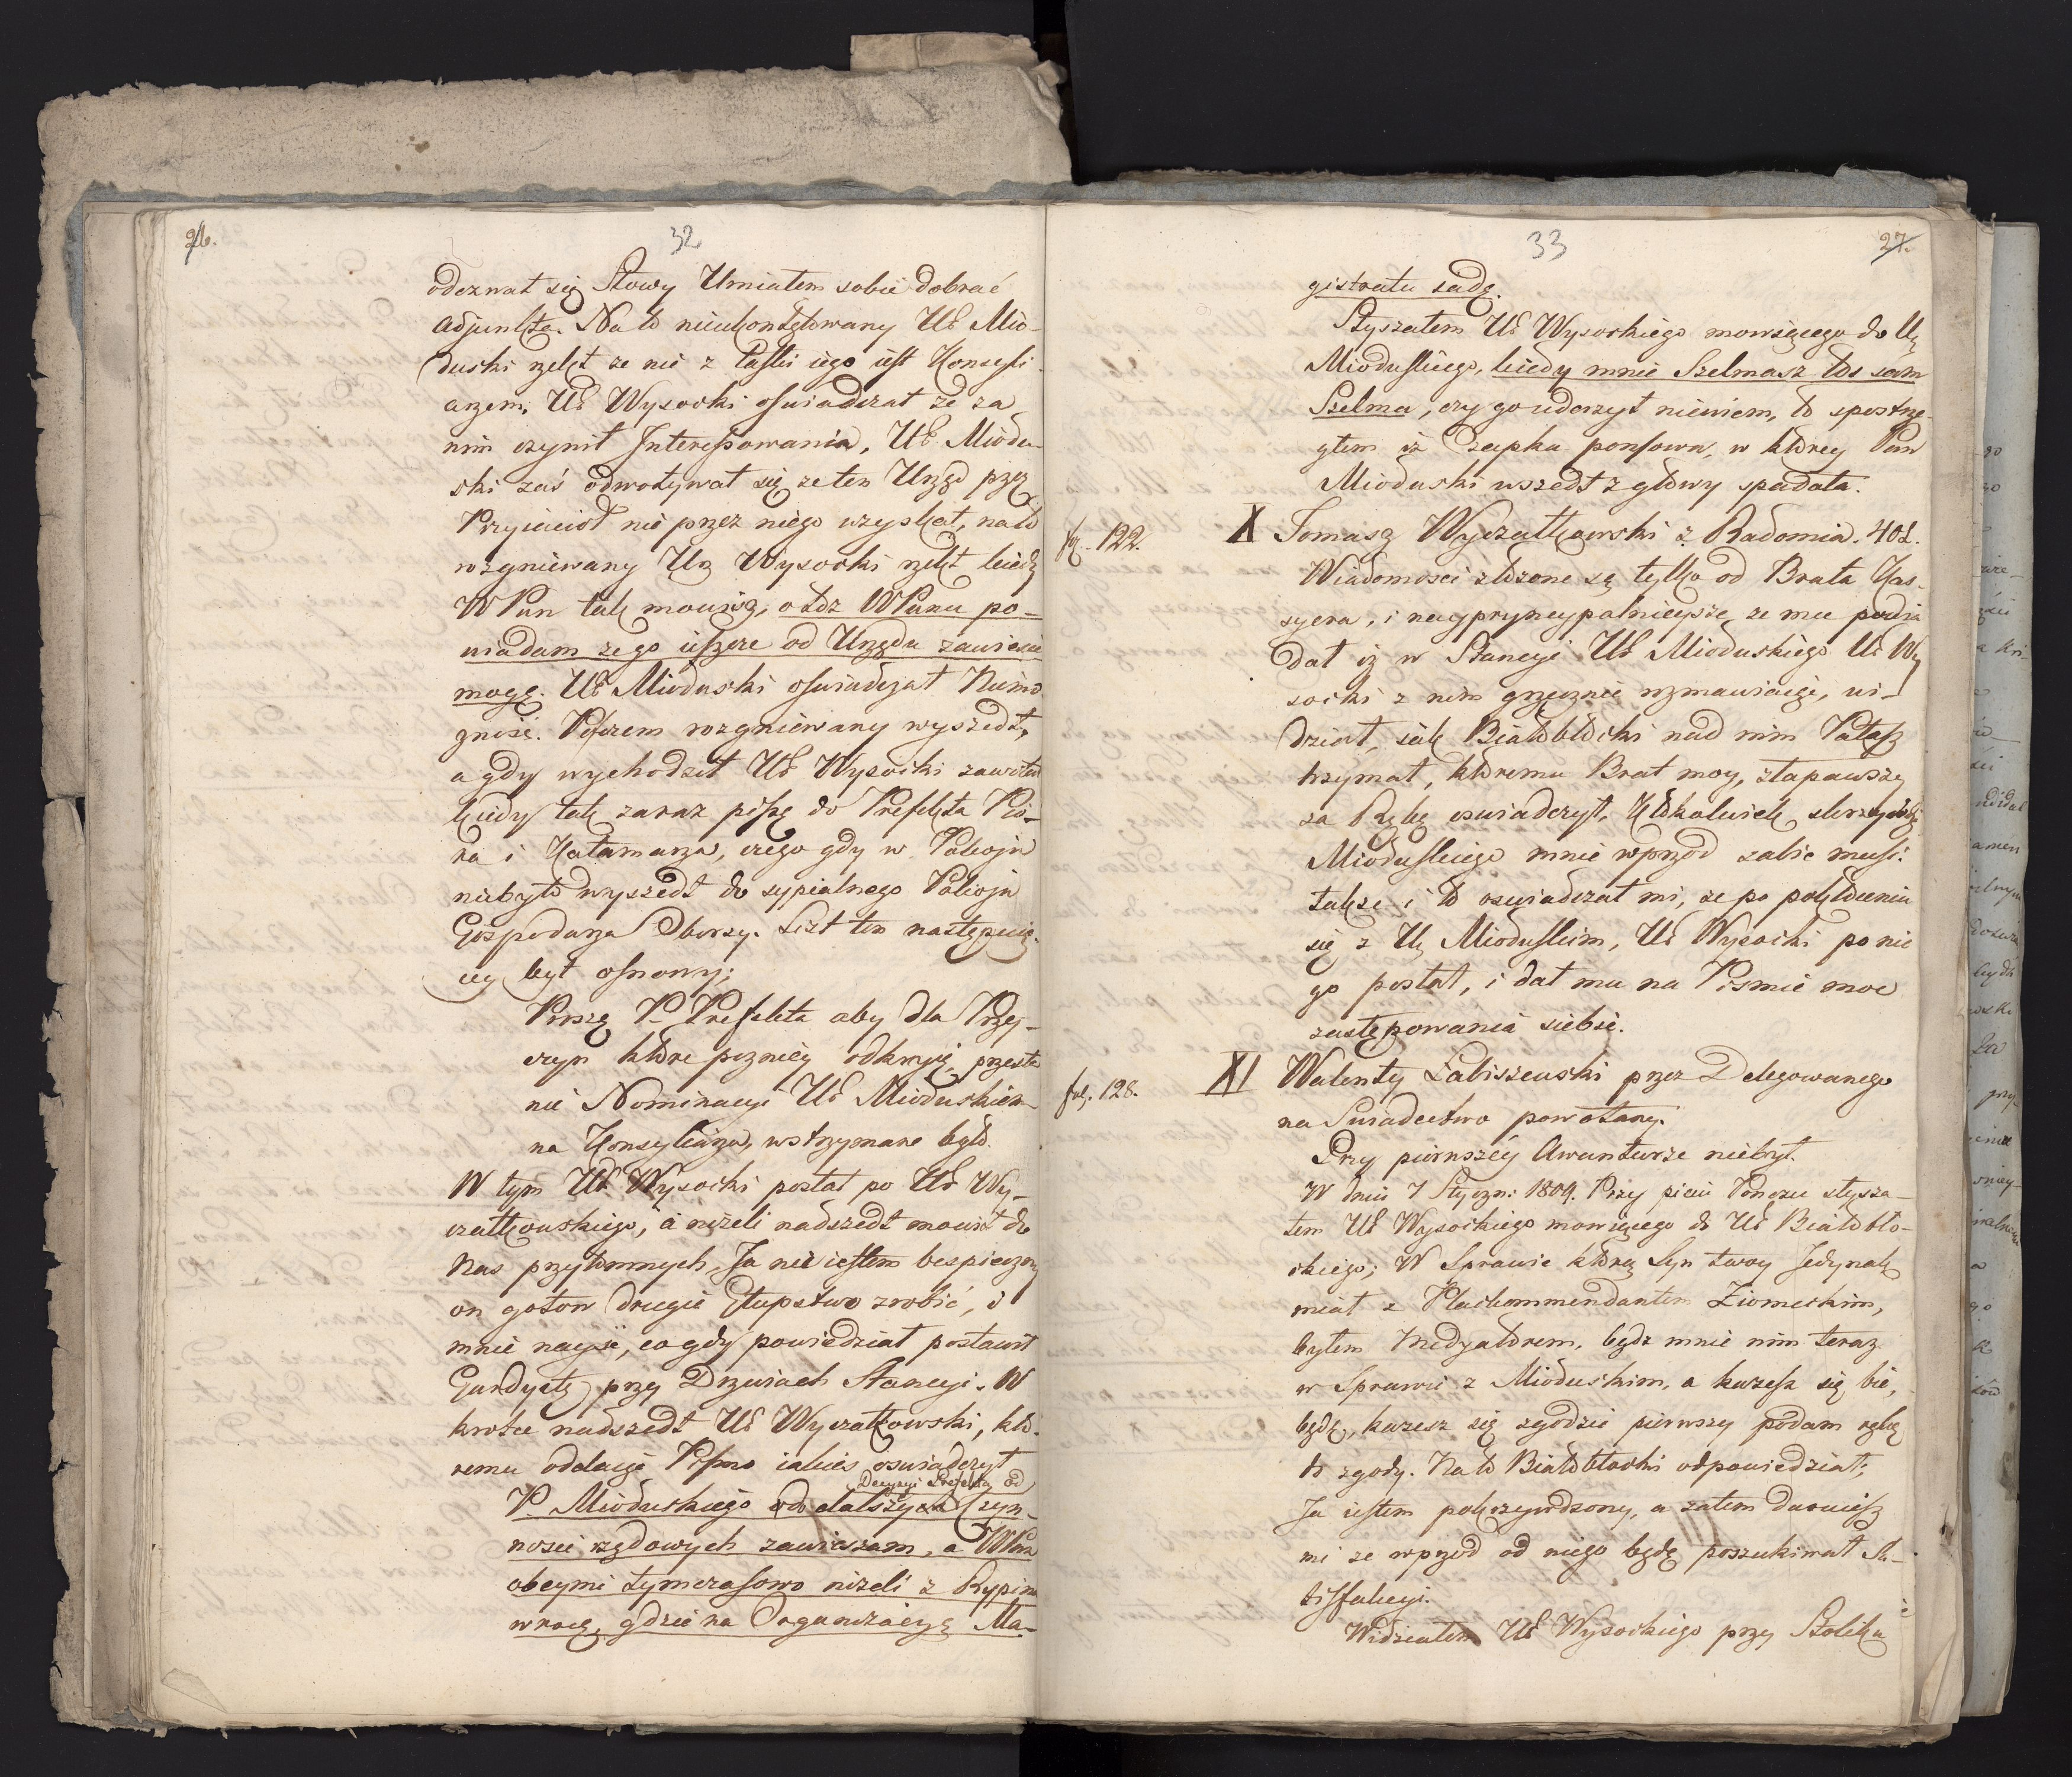 26.
32
odezwał się Słowy Umiałem sobie dobrać
Adjunkta. Na to nieukontętowany Ur Mio-
duski rzekł ze nie z łaski iego iest Konsyli-
arzem, Ur Wysocki oswiadczał ze za
nim czynił Interessowania, Ur Miodu-
ski zaś odwoływał się ze ten Urząd przez
Przyiacioł nie przez niego uzyskał, na to
rozgniewany Ur Wysocki rzekł kiedy
WPan tak mowisz, otoz WPanu po-
wiadam ze go ieszcze od Urzędu zawiesić
mogę. Ur Mioduski oswiadczał
Poczem rozgniewany wyszedł,
a gdy wychodził Ur Wysocki zawołał
kiedy tak zaraz piszę do Prefekta Pió-
ra i Kałamarza, czego gdy w Pokoju
niebyło wyszedł do sypialnego Pokoju
Gospodarza Oborsy. List ten następuią-
cy był osnowy;
Proszę P. Prefekta aby dla Przy-
czyn ktore pozniey odkryię, przesła
nie Nominacyi Ur Mioduskiem
na Konsyliarza, wstrzymane było.
W tym Ur Wysocki posłał po Ur Wy-
czałkowskiego, a nizeli nadszedł mowił do
Nas przytomnych, Ja nie iestem bespieczny
on gotow drugie Głupstwo zrobić, i
mnie nayść, co gdy powiedział postawił
Gwardystę przy Drzwiach Stancyi. W
krotce nadszedł Ur Wyczałkowski, kto-
remu oddaiąc Pismo iakies oswiadczył
Decyzyi Prefekta od
P. Mioduskiego od dalszych Czyn-
nosci rządowych zawieszam, a WPan
obeymi tymczasowo nizeli z Rypina
wrocę, gdzie na Organizacyą Ma-
33
27.
gistratu iadę.
Słyszałem Ur Wysockiego mowiącego do Ur
Mioduskiego, kiedy mnie Szelmasz toś sam
Szelma, czy go uderzył niewiem, to spostrze-
głem iz Czapka ponsowa, w ktorey Pan
Mioduski wszedł z głowy spadała.
fol. 122.
X Tomasz Wyczałkowski z Radomia. 40 l.
Wiadomosci złozone są tylko od Brata Kas-
syera, i naypryncypalnieysze, ze mu powia
dał iz w Stancyi Ur Mioduskiego Ur Wy
socki z nim grzecznie rozmawiaiąc, wi-
dział, iak Białobłocki nad nim Pałasz
trzymał, ktoremu Brat moy, złapawszy
za Rękę oswiadczył, Ktokolwiek skrzywdzi
Mioduskiego mnie wprzod zabic musi:
takze i to oswiadczał mi, ze po pokłoceniu
się z Ur Mioduskim, Ur Wysocki po nie
go posłał, i dał mu na Pismie moc
zastępowania siebie.
fol. 128.
XI Walenty Łabiszewski przez Delegowanego
na Swiadectwo powołany.
Przy pierwszéy Awanturze niebył.
W dniu 7 Styczn: 1809. Przy piciu Ponczu słysza-
łem Ur Wysockiego mowiącego do Ur Białobło-
ckiego; W Sprawie ktorą Syn twoy Jedynak
miał z Plackommendantem Ziomeckim,
byłem Medyatorem, bądz mnie nim teraz
w Sprawie z Mioduskim, a kazesz się bić,
będę, kazesz się zgodzić pierwszy podam rękę
do zgody. Na to Białobłocki odpowiedział;
Ja iestem pokrzywdzony, a zatem daruiesz
mi ze wprzod od niego będę poszukiwał Sa-
tisfakcyi.
Widziałem Ur Wysockiego przy Stoliku